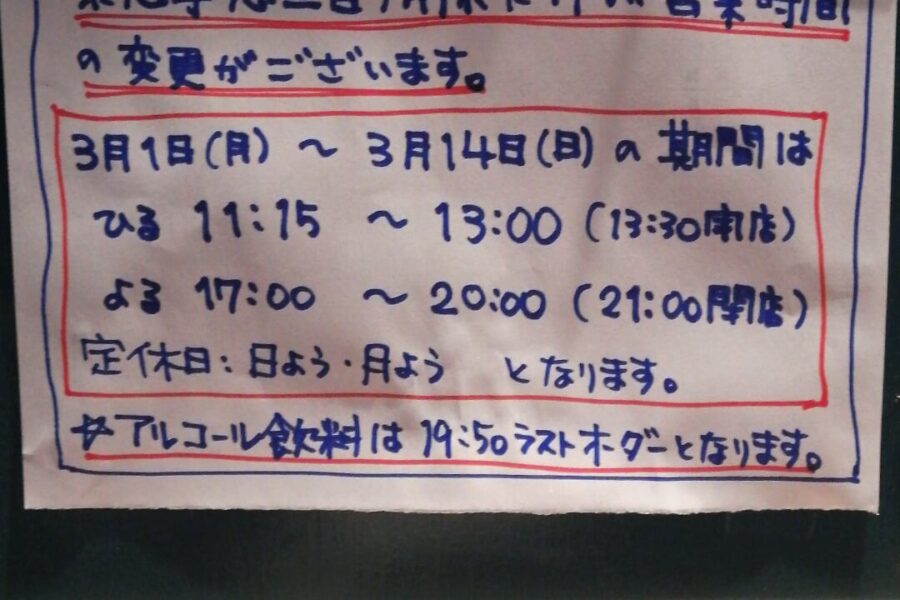 営業時間
の変更がございます。
3月1日(月) ～ 3月14日(日) の 期間は
ひる 11:15 ～ 13:00 (13:30閉店)
よる 17:00 ～ 20:00 (21:00閉店)
定休日: 日よう・月よう となります。
※アルコール飲料は 19:50ラストオーダーとなります。